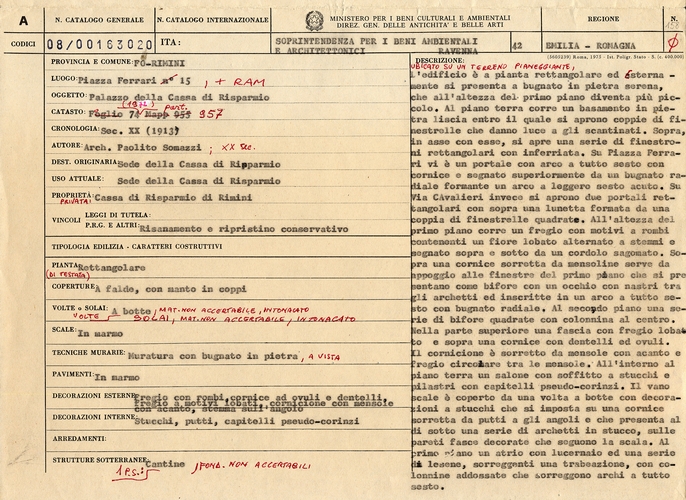 A
N. CATALOGO GENERALE
N. CATALOGO INTERNAZIONALE
MINISTERO PER I BENI CULTURALI E AMBIENTALI
DIREZ. GEN. DELLE ANTICHITA' E BELLE ARTI
REGIONE
N.
CODICI
08/00163020
ITA:
SOPRINTENDENZA PER I BENI AMBIENTALI
E ARCHITETTONICI RAVENNA
42
EMILIA - ROMAGNA
PROVINCIA E COMUNE: FO-RIMINI
LUOGO: Piazza Ferrari n° 15 , + RAM
OGGETTO: Palazzo della Cassa di Risparmio
CATASTO: Foglio 74 Mapp 955 part. 957
CRONOLOGIA: Soc. XX (1913)
AUTORE: Arch. Paolito Somazzi ; XX sec.
DEST. ORIGINARIA: Sede della Cassa di Risparmio
USO ATTUALE: Sede della Cassa di Risparmio
PROPRIETÀ: Cassa di Risparmio di Rimini
PRIVATA
VINCOLI
LEGGI DI TUTELA:
P.R.G. E ALTRI: Risanamento e ripristino conservativo
TIPOLOGIA EDILIZIA - CARATTERI COSTRUTTIVI
PIANTA: Rettangolare
(DI TESTATA)
COPERTURE: A falde, con manto in coppi
VOLTE o SOLAI: A botte, MAT. NON ACCERTABILE, INTONACATO
VOLTE SOLAI, MAT. NON ACCERTABILE, INTONACATO
SCALE: In marmo
TECNICHE MURARIE: Muratura con bugnato in pietra, A VISTA
PAVIMENTI: In marmo
DECORAZIONI ESTERNE: Fregio con rombi, cornice ad ovuli e dentelli,
fregio a motivi lobati, cornicione con mensole
con acanto, stemma sull'angolo
DECORAZIONI INTERNE: Stucchi, putti, capitelli pseudo-corinzi
ARREDAMENTI:
STRUTTURE SOTTERRANEE: Cantine , FOND. NON ACCERTABILI
1 P.S.:
DESCRIZIONE:
UBICATO SU UN TERRENO PIANEGGIANTE,
l'edificio è a pianta rettangolare ed esterna-
mente si presenta a bugnato in pietra serena,
che all'altezza del primo piano diventa più pic-
colo. Al piano terra corre un basamento in pie-
tra liscia entro il quale si aprono coppie di fi-
nestrelle che danno luce a gli scantinati. Sopra,
in asse con esse, si apre una serie di finestro-
ni rettangolari con inferriata. Su Piazza Ferra-
ri vi è un portale con arco a tutto sesto con
cornice e segnato superiormente da un bugnato ra-
diale formante un arco a leggero sesto acuto. Su
Via CAvalieri invece si aprono due portali ret-
tangolari con sopra una lunetta formata da una
coppia di finestrelle quadrate. All'altezza del
primo piano corre un fregio con motivi a rombi
contenenti un fiore lobato alternato a stemmi e
segnato sopra e sotto da un cordolo sagomato. So-
pra una cornice sorretta da mensoline serve da
appoggio alle finestre del primo piano che si pre
sentano come bifore con un occhio con nastri tra
gli archetti ed inscritte in un arco a tutto se-
sto con bugnato radiale. Al secondo piano una se-
rie di bifore quadrate con colonnina al centro.
Nella parte superiore una fascia con fregio loba
to e sopra una cornice con dentelli ed ovuli.
Il cornicione è sorretto da mensole con acanto e
fregio circolare tra le mensole. All'interno al
piano terra un salone con soffitto a stucchi e
pilastri con capitelli pseudo-corinzi. Il vano
scale è coperto da una volta a botte con decora-
zioni a stucchi che si imposta su una cornice
sorretta da putti a gli angoli e che presenta al
di sotto una serie di archetti in stucco, sulle
pareti fasce decorate che seguono la scala. Al
primo piano un atrio con lucernaio ed una serie
di lesene, sorreggenti una trabeazione, con co-
lonnine addossate che sorreggono archi a tutto
sesto.